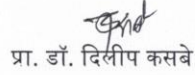 प्रा. डॉ. दिलीप कसबे